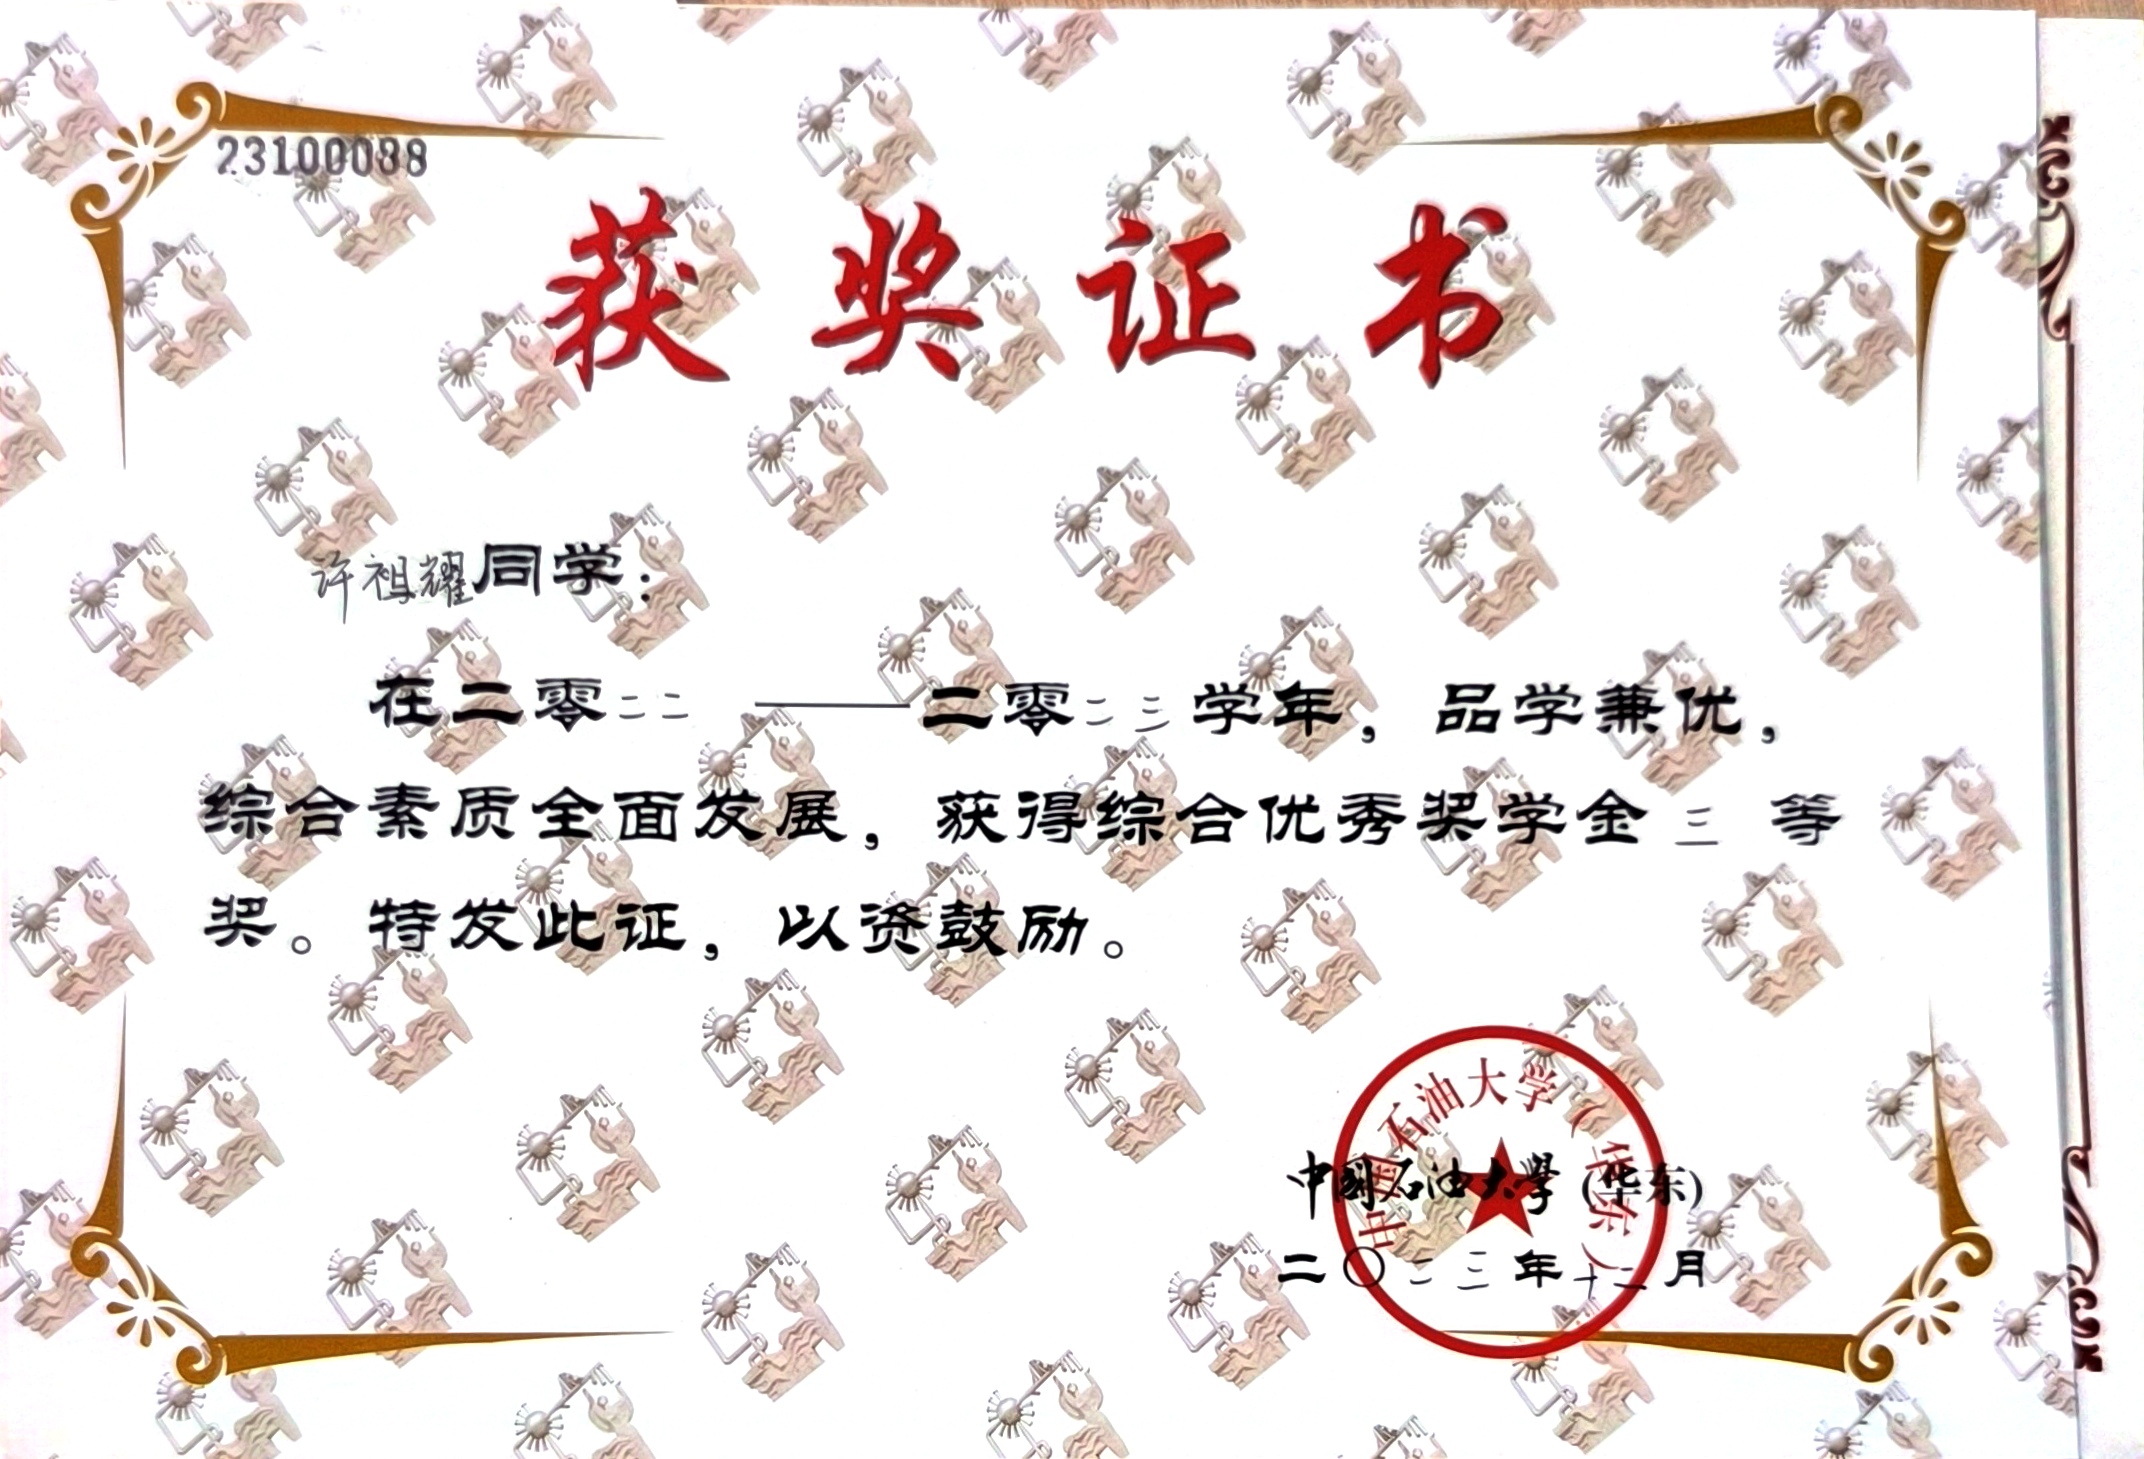 23100088
获奖证书
许祖耀同学：
在二零二二——二零二三学年，品学兼优，
综合素质全面发展，获得综合优秀奖学金三等
奖。特发此证，以资鼓励。
中国石油大学（华东）
中国石油大学(华东)
二〇二三年十二月